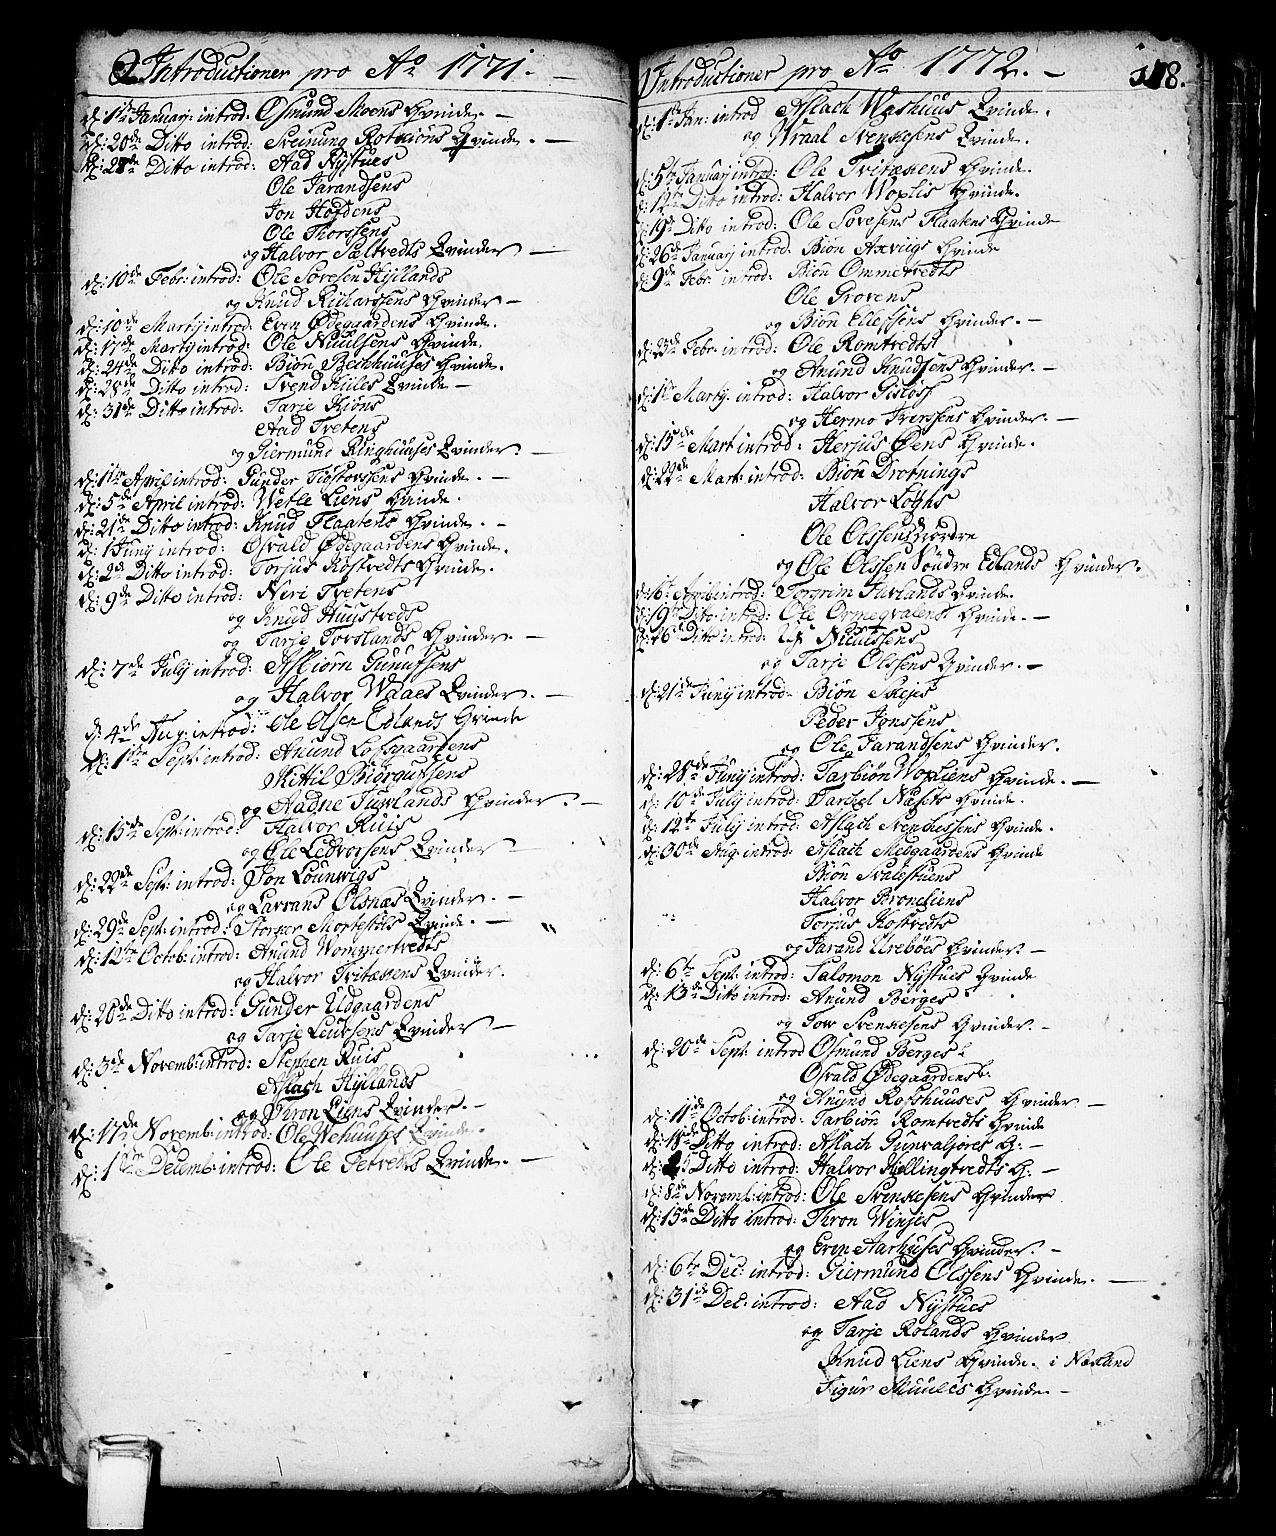 Introductioner pro Aº 1771. –
d: 1ste Januarij: introd: Osmund Moens Qvinde. –
d: 20de Ditto introd: Sveinung Qvinde. –
d: 28de Ditto introd: Aad Nÿstues
Ole Tarandsens
Jon Hofdens
Ole Thorssens
og Halvor Sæltvedts Qvinder –
d: 10de Febr: introd: Ole Sørensen Hÿllands
og Knud Richarssens Qvinder –
d: 10de Martij introd: Even Ødegaardens Qvinde.
d: 17de Martij introd: Ole Qvinde.
d: 24de Ditto introd: Biön Bechhuuses Qvinde.
d: 28de Ditto introd: Svend Qvinde –
d: 31de Ditto introd: Tarje Kiöns
Aad Tvetens
og Giermund Ringhuuses Qvinder –
d: April introd: Gunder Tostovssens Qvinde. –
d: 5de April introd: Wetle Liens Qvinde.
d: 21de Ditto introd: Knud Flaatens Qvinde. –
d: 1 Junÿ introd: Osvald Ødegaardens Qvinde.
d: 2de Ditto introd: Torjus Kostvedts Qvinde.
d: 9de Ditto introd: Neri Tvetens
og Knud Huustveds
og Tarje Torslands Qvinder. –
d: 7de Julÿ introd: Asbiörn Gunufsens
og Halvor Waaes Qvinder. –
d: 4de Aug: introd: Ole Olsen Edlands Qvinde
d: 1ste Sept: introd: Anund Lofsgaardens
Kittil Biörgufsens
og Aadne Juvlands Qvinder. –
d: 15de Sept: introd: Halvor Ruis
og Ole Ledvorsens Qvinder –
d: 22de Sept: introd: Jon Lounwigs
og Lavrans Olsnæs Qvinder. –
d: 29de Sept: introd: Qvinde. –
d: 12te Octob: introd: Anund Wommertvedts
og Halvor Tvitæssens Qvinder.
d: 20de Ditto introd: Gunder Udgaardens
og Tarje Leufsens Qvinder –
d: 3de Novemb: introd: Stephen Ruis
Aslach Hÿllands
og Thron Liens Qvinder. –
d: 17de Novemb: introd: Ole Wehuuses Qvinde.
d: 1ste Decemb: introd: Ole Tetvedts Qvinde. –
Introductioner pro Aº 1772. –
118.
d: 1ste Jan: introd Aslach Washuus Qvinde.
og Wraal Svenkesens Qvinde.
d: 5te Januarij introd: Ole Tvitæssens Qvinde.
d: 12te Ditto introd: Halvor Woxlis Qvinde.
d: 19de Ditto introd: Ole Sövesens Flaatens Qvinde
d: 26de Januarij introd: Biön Axvigs Qvinde
d: 9de Febr: introd: Biön Ommetvedts
Ole Grovens
og Biön Ellefsens Qvinder. –
d: 23de Febr: introd: Ole Romtvedts
og Anund Knudsens Qvinder. –
d: 1ste Martij. introd: Halvor
og Hermo Iverssens Qvinder. –
d: 15de Mart: introd: Herjus Øens Qvinde.
d: 22de Mart: introd: Biön Drotnings
Halvor Löghs
Ole Olssens
og Ole Olssen Söndre Edlands Qvinder. –
d: 6te April introd: Torgrim Juvlands Qvinde.
d: 19de Ditto introd: Ole Ormegvalens Qvinde. –
d: 26de Ditto introd:
og Tarje Olssens Qvinder. –
d: 21de Junÿ introd: Biön Skejs
Peder Jonssens
og Ole Tarandsens Qvinder.
d: 28de Junÿ introd: Tarbiön Woxliens Qvinde. –
d: 10de Julÿ introd: Tarkel Næsets Qvinde.
d: 12te Julÿ introd: Aslach Svenkessens Qvinde.
d: 30de Aug: introd: Aslach Medgaardens Qvinde
Biön Svalestuens
Halvor Broneliens
Torjus Kostvedts
og Tarand Ureböes Qvinder. –
d: 6te Sept: introd: Salomon Nÿstues Qvinde
d: 13de Ditto introd: Anund Berges
og Tow Svenkesens Qvinder. –
d: 20de Sept: introd Osmund Berges
Osvald Ødegaardens
og Anund Rofshuuses Qvinder –
d: 11te Octob: introd: Tarbiön Romtvedts Qvinde
d: 18de Ditto introd: Aslach Gunvaljores Q: –
d: Ditto introd: Halvor Kellingtvedts Q: –
d: 8de Novemb: introd: Ole Svenkesens Qvinder.
d: 15de Ditto introd: Thron Winjes
og Even Aarhuses Qvinder. –
d: 6te Dec: introd: Giermund Olssens Qvinde. –
d: 31de Dec: introd: Aad Nÿstues
og Tarje Rolands Qvinder
Knud Liens Qvinde. i Næsland
Sigur Muules Qvinde. –